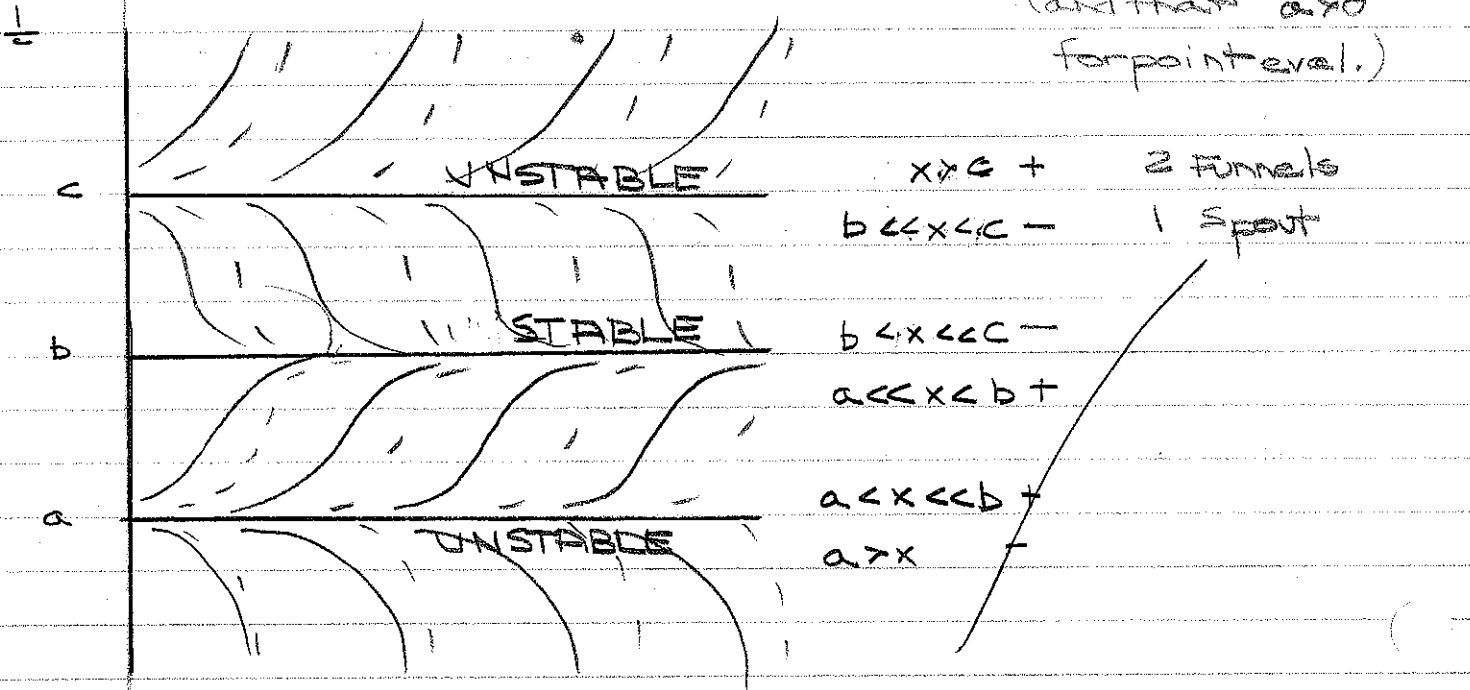 a>0
for point eval.)
c
UNSTABLE
x>c + 2 Funnels
b<<x<c - 1 Spout
b
STABLE
b<x<<c -
a<<x<b +
a
UNSTABLE
a<x<<b +
a>x -